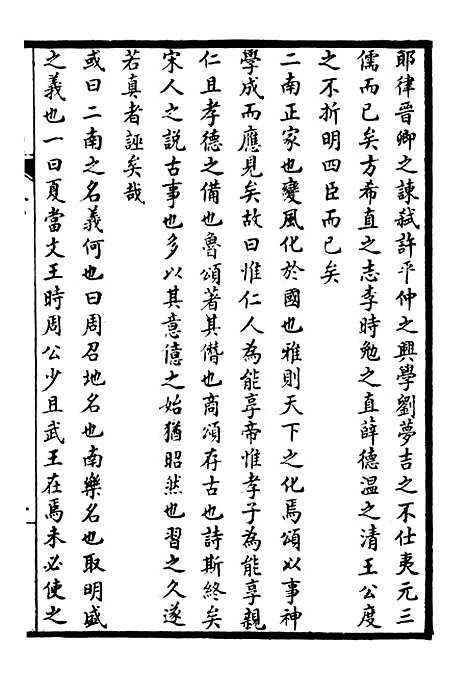 耶律晉卿之諫弑許平仲之興學劉夢吉之不仕夷元三
儒而已矣方希直之志李時勉之直薛德温之清王公度
之不折明四臣而已矣
二南正家也變風化於國也雅則天下之化焉頌以事神
學成而應見矣故曰惟仁人為能享帝惟孝子為能享親
仁且孝德之備也魯頌著其僭也商頌存古也詩斯終矣
宋人之說古事也多以其意億之始猶昭然也習之久遂
若真者誣矣哉
或曰二南之名義何也曰周召地名也南樂名也取明盛
之義也一曰夏當文王時周公少且武王在焉未必使之